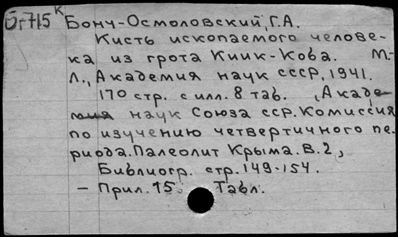 Бг715к Бонч-Осмоловский, Г.А.
Кисть ископаемого челове-
ка из грота Киик-Коба. М.-
Л., Академия наук СССР, 1941.
170 стр. с илл. 8 таб. (Акаде-
мия наук Союза ССР. Комиссия
по изучению четвертичного пе-
риода. Палеолит Крыма. В. 2,
Библиогр. стр. 149-154.
– Прил. 15. Табл.